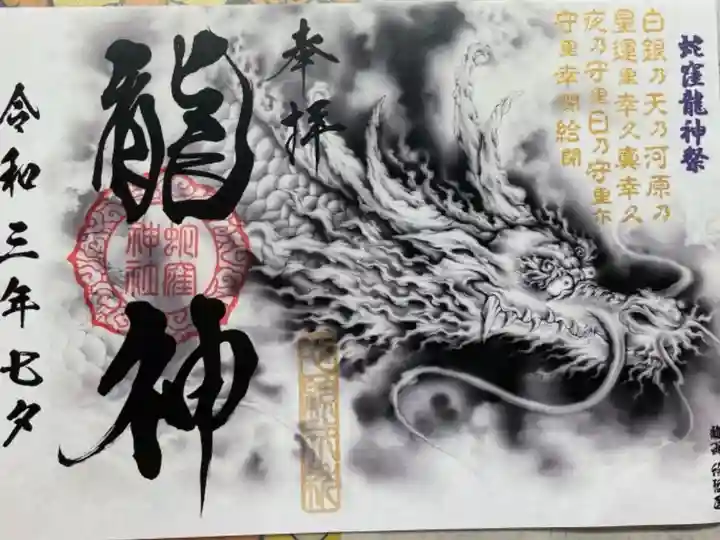 蛇窪龍神祭
白銀乃天乃河原乃
星運里幸久真幸久
夜乃守里日乃守里尓
守里幸閇給閇
奉拝
龍神
蛇窪神社
令和三年七夕